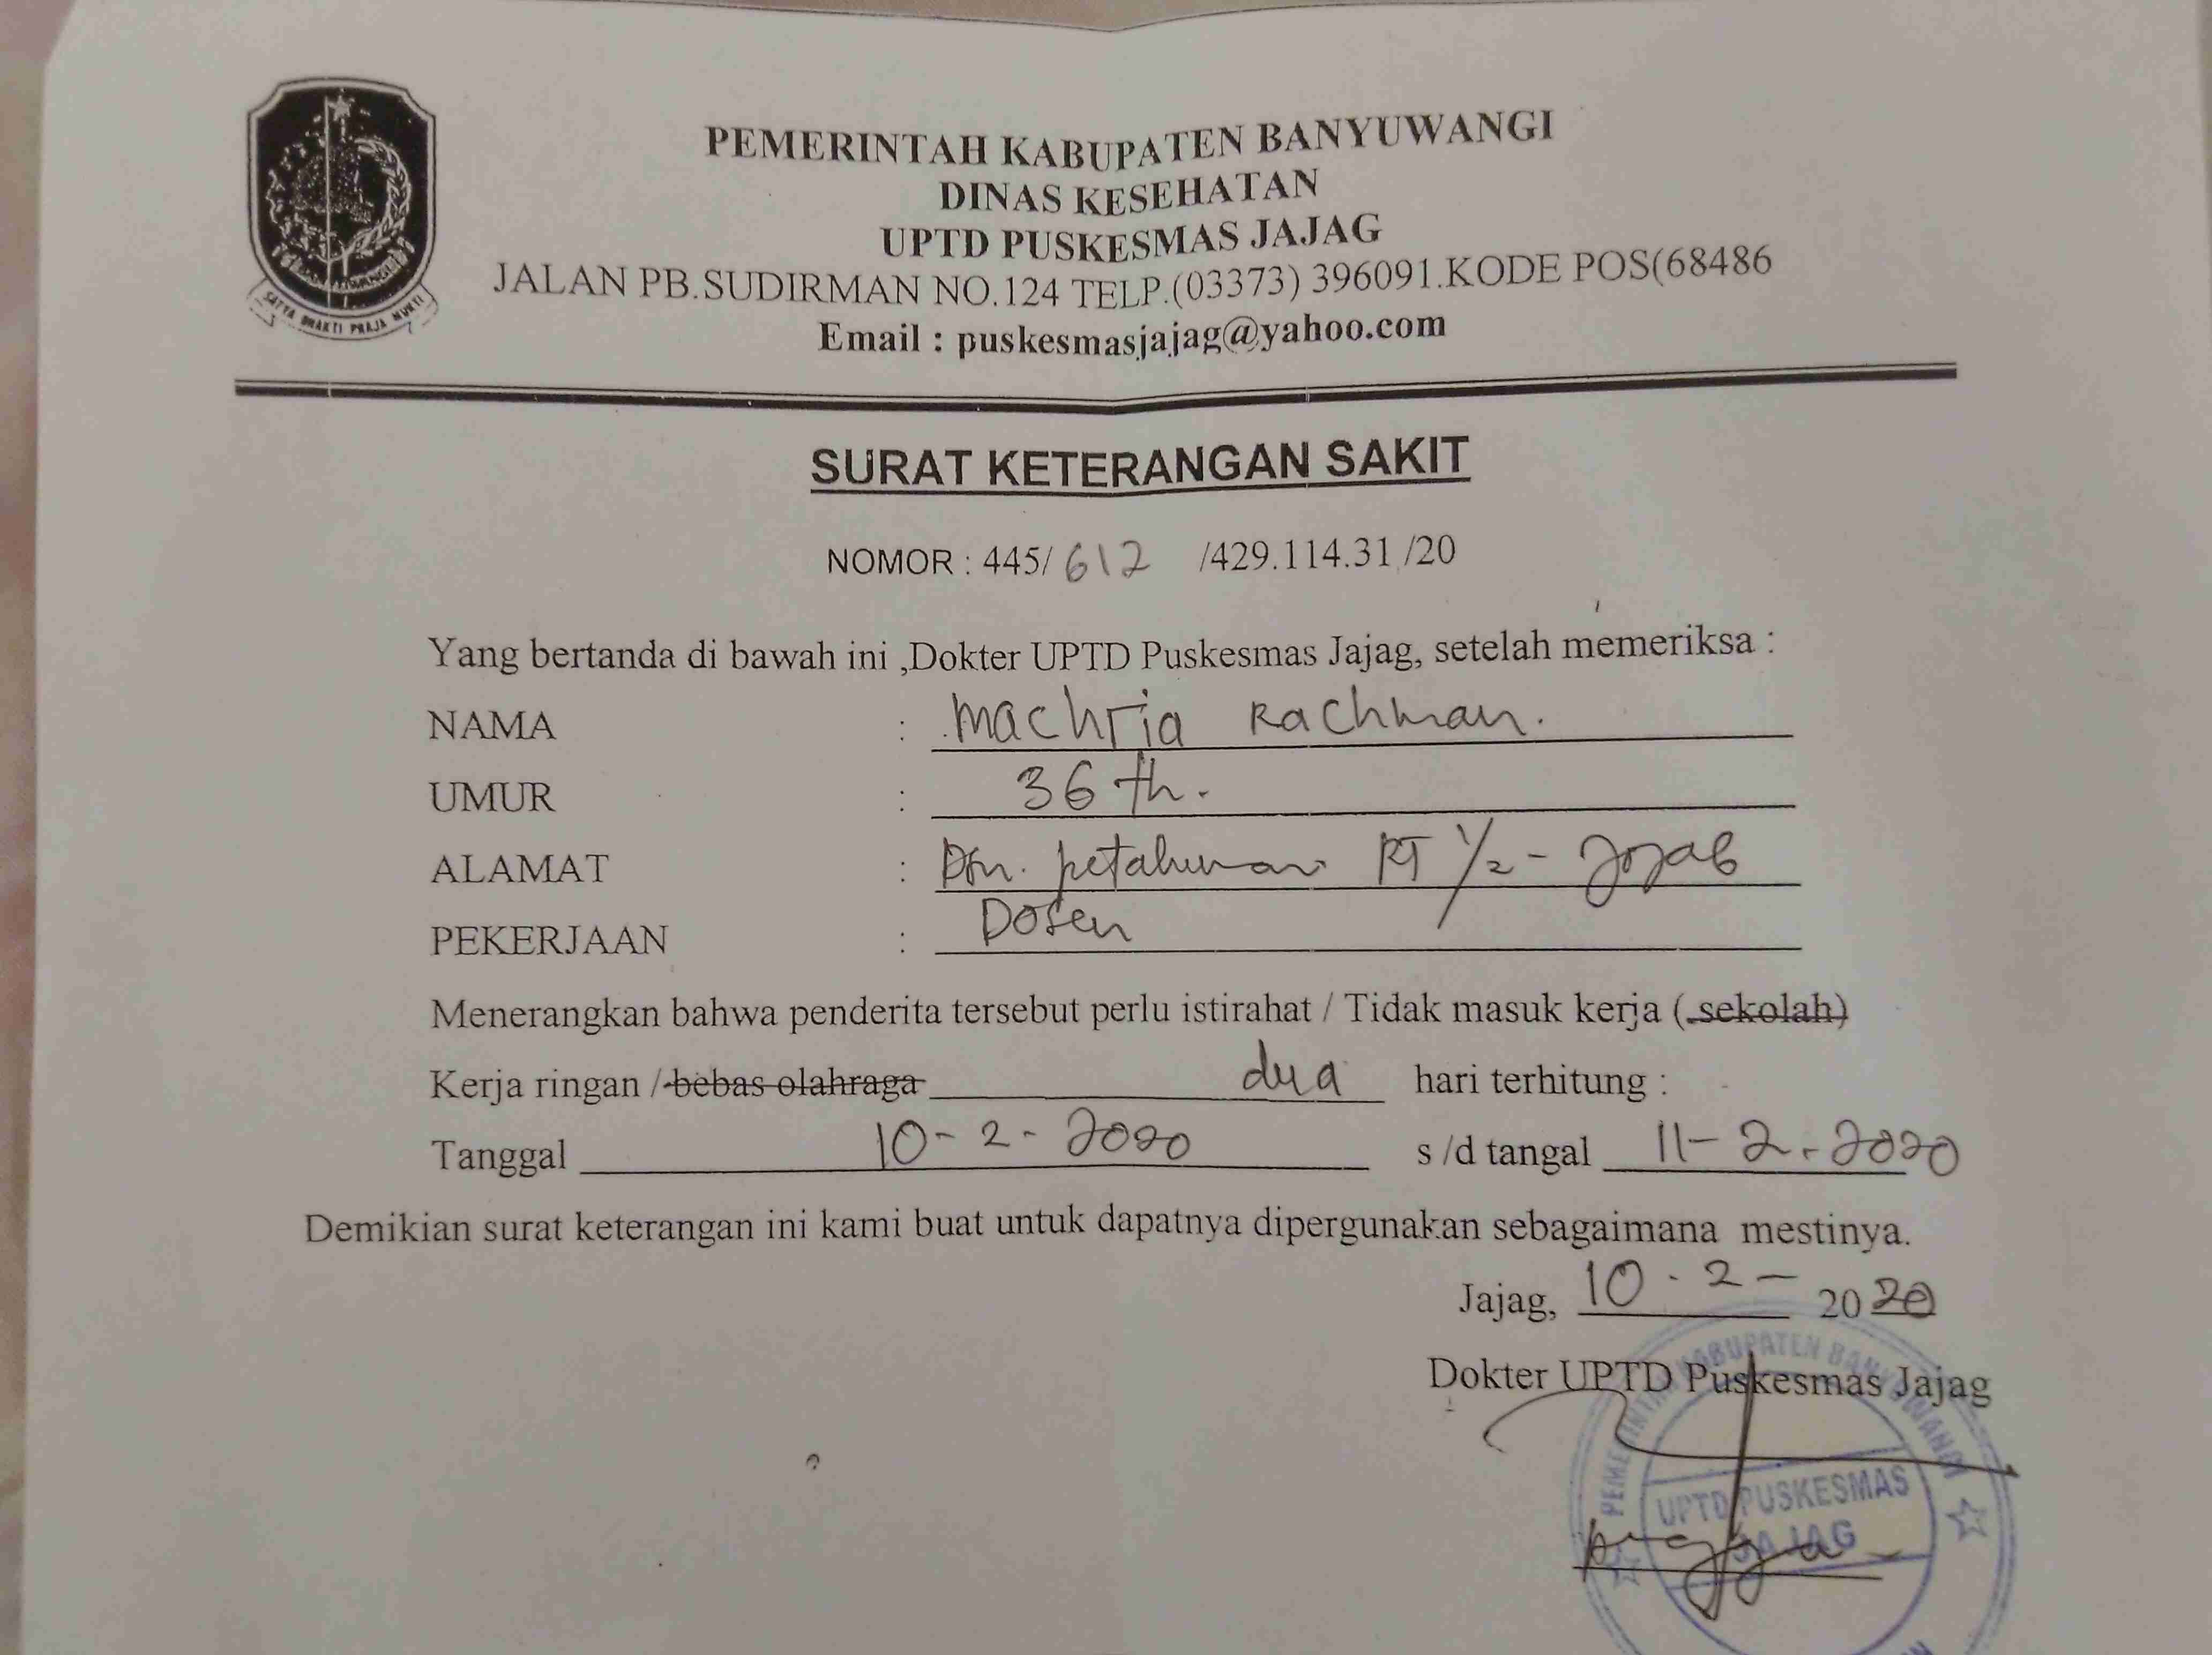 PEMERINTAH KABUPATEN BANYUWANGI
DINAS KESEHATAN
UPTD PUSKESMAS JAJAG
JALAN PB.SUDIRMAN NO.124 TELP.(03373) 396091.KODE POS(68486
Email : puskesmasjajag@yahoo.com
SATYA BHAKTI PRAJA MUKTI
SURAT KETERANGAN SAKIT
NOMOR : 445/ 612 /429.114.31 /20
Yang bertanda di bawah ini ,Dokter UPTD Puskesmas Jajag, setelah memeriksa :
NAMA : Machria Rachman.
UMUR : 36 th.
ALAMAT : Dsn. petahunan RT 1/2 - Jajag
PEKERJAAN : Dosen
Menerangkan bahwa penderita tersebut perlu istirahat / Tidak masuk kerja ( sekolah)
Kerja ringan / bebas olahraga dua hari terhitung :
Tanggal 10 - 2 - 2020 s /d tangal 11 - 2 - 2020
Demikian surat keterangan ini kami buat untuk dapatnya dipergunakan sebagaimana mestinya.
Jajag, 10 - 2 - 2020
Dokter UPTD Puskesmas Jajag
KABUPATEN
UPTD PUSKESMAS
JAJAG